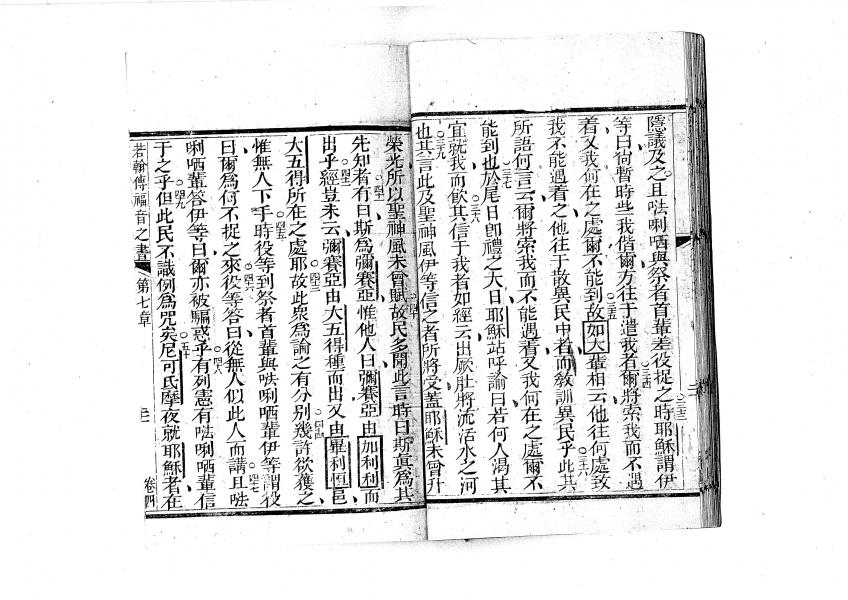 隂議及之且𠵽唎哂與祭者首輩差役捉之時耶穌謂伊
等曰尚暫時些我偕爾方往于遣我者爾將索我而不遇
着又我何在之處爾不能到故如大輩相云他往何處致
我不能遇着之他往于散異民中者而敎訓異民乎此其
所語何言云爾將索我而不能遇着又我何在之處爾不
能到也於尾日卽禮之大日耶穌站呼諭曰若何人渴其
宜就我而飲其信于我者如經云出厥肚將流活水之河
也其言此及聖神風伊等信之者所將受蓋耶穌未曾升
榮光所以聖神風未曾賦故民多聞此言時曰斯眞爲其
先知者有曰斯爲彌賽亞惟他人曰彌賽亞由加利利而
出乎經豈未云彌賽亞由大五得種而出又由畢利恒邑
大五得所在之處耶故此衆爲論之有分别幾許欲獲之
惟無人下手時役等到祭者首輩與𠵽唎哂輩伊等謂役
曰爾爲何不捉之來役等答曰從無人似此人而講且𠵽
唎哂輩答伊等曰爾亦被騙惑乎有列憲有𠵽唎哂輩信
于之乎但此民不識例爲咒矣尼可氐摩夜就耶穌者在
若翰傳福音之書
第七章
卷四